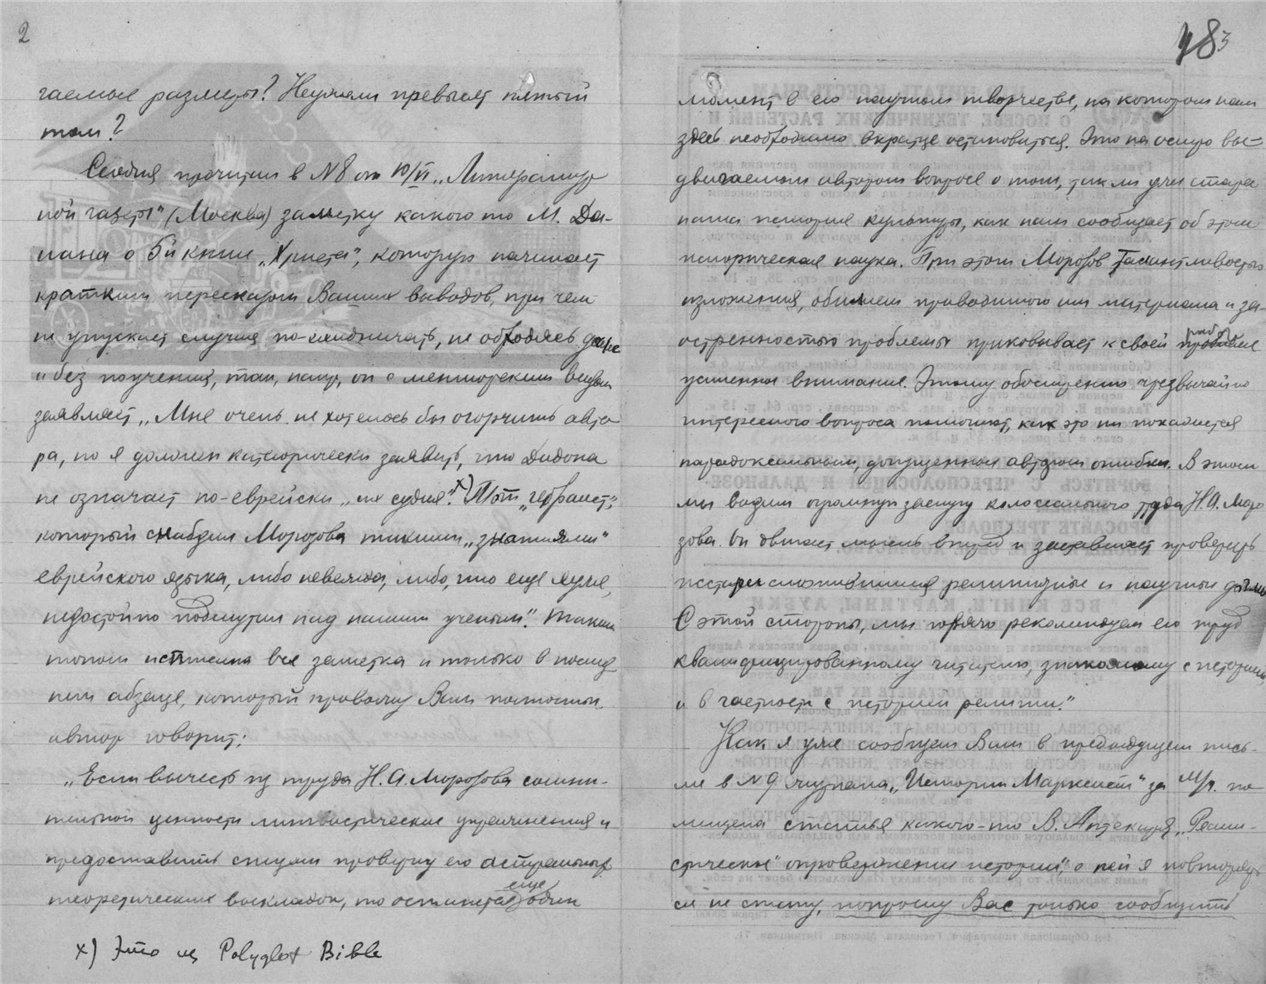 2
гаемые размеры? Неужели превысят пятый
том?
Сегодня прочитал в N8 от 10/VI „Литератур
ной газеты" (Москва) заметку какого то М. Да-
иана о 5й книге „Христа", которую начинает
кратким пересказом Ваших выводов, при чем
не упускает случая по-ехидничать, не обходясь даже
и без поучения, так, напр, он с менторским
заявляет „Мне очень не хотелось бы огорчить авто
ра, но я должен категорически заявить, что Дидона
не означает по-еврейски „не судия".x) Тот „гебраист",
который снабдил Морозова такими „знаниями"
еврейского языка, либо невежда, либо, что еще хуже,
недостойно подшутил над нашим ученым". Таким
тоном вся заметка и только в послед
нем абзаце, который привожу Вам полностью,
автор говорит:
„Если вычесть из труда Н. А. Морозова сомни-
тельной ценности лингвистические упражнения и
предоставить спецам проверку его астральных
теоретических выкладок, то останется еще один
x) Это из Polyglot Bible
183
момент в его научном творчестве, на котором нам
здесь необходимо вкратце остановиться. Это на остро вы-
двигаемом автором вопросе о том, так ли уж стара
наша история культуры, как нам сообщает об этом
историческая наука. При этом Морозов талантливостью
изложения, обилием приводимого им материала и за-
остренностью проблемы приковывает к своей работе
усиленное внимание. Этому обострению чрезвычайно
интересного вопроса помогают, как это ни покажется
парадоксальным, допущенные автором ошибки. В этом
мы видим огромную заслугу колоссального труда Н. А. Моро
зова. Он двигает мысль вперед и заставляет проверять
исстари сложившиеся религиозные и научные догмы
С этой стороны, мы горячо рекомендуем его труд
квалифицированному читателю, знакомому с историей
и в частности с историей религии."
Как я уже сообщал Вам в предыдущем пись-
ме в N9 журнала „Историк Марксист" за по
мещена статья какого-то В. Аптекаря „Реали-
стическое" опровержение истории", о ней я повторять
ся не стану, попрошу Вас только сообщить